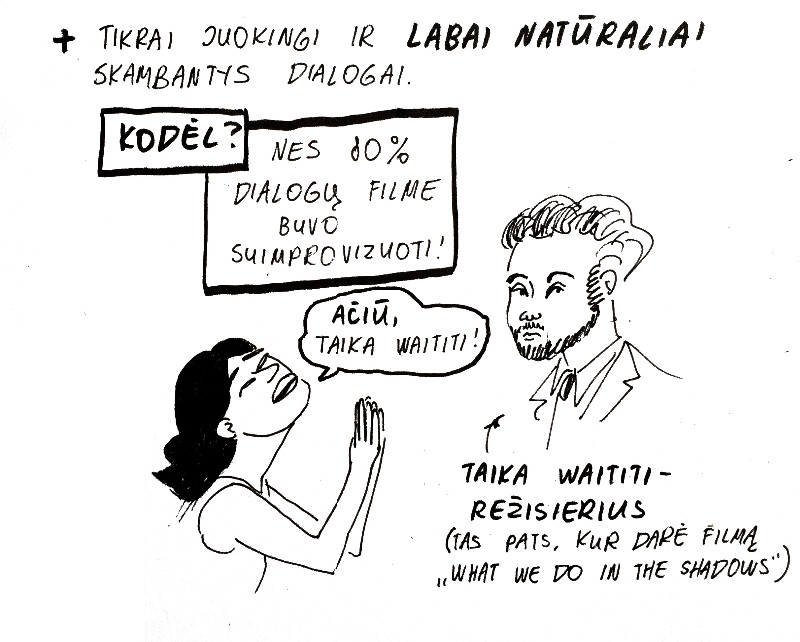 + TIKRAI JUOKINGI IR LABAI NATŪRALIAI
SKAMBANTYS DIALOGAI.
KODĖL?
NES 80%
DIALOGŲ FILME
BUVO
SUIMPROVIZUOTI!
AČIŪ,
TAIKA WAITITI!
TAIKA WAITITI –
REŽISIERIUS
(TAS PATS, KUR DARĖ FILMĄ
„WHAT WE DO IN THE SHADOWS“)